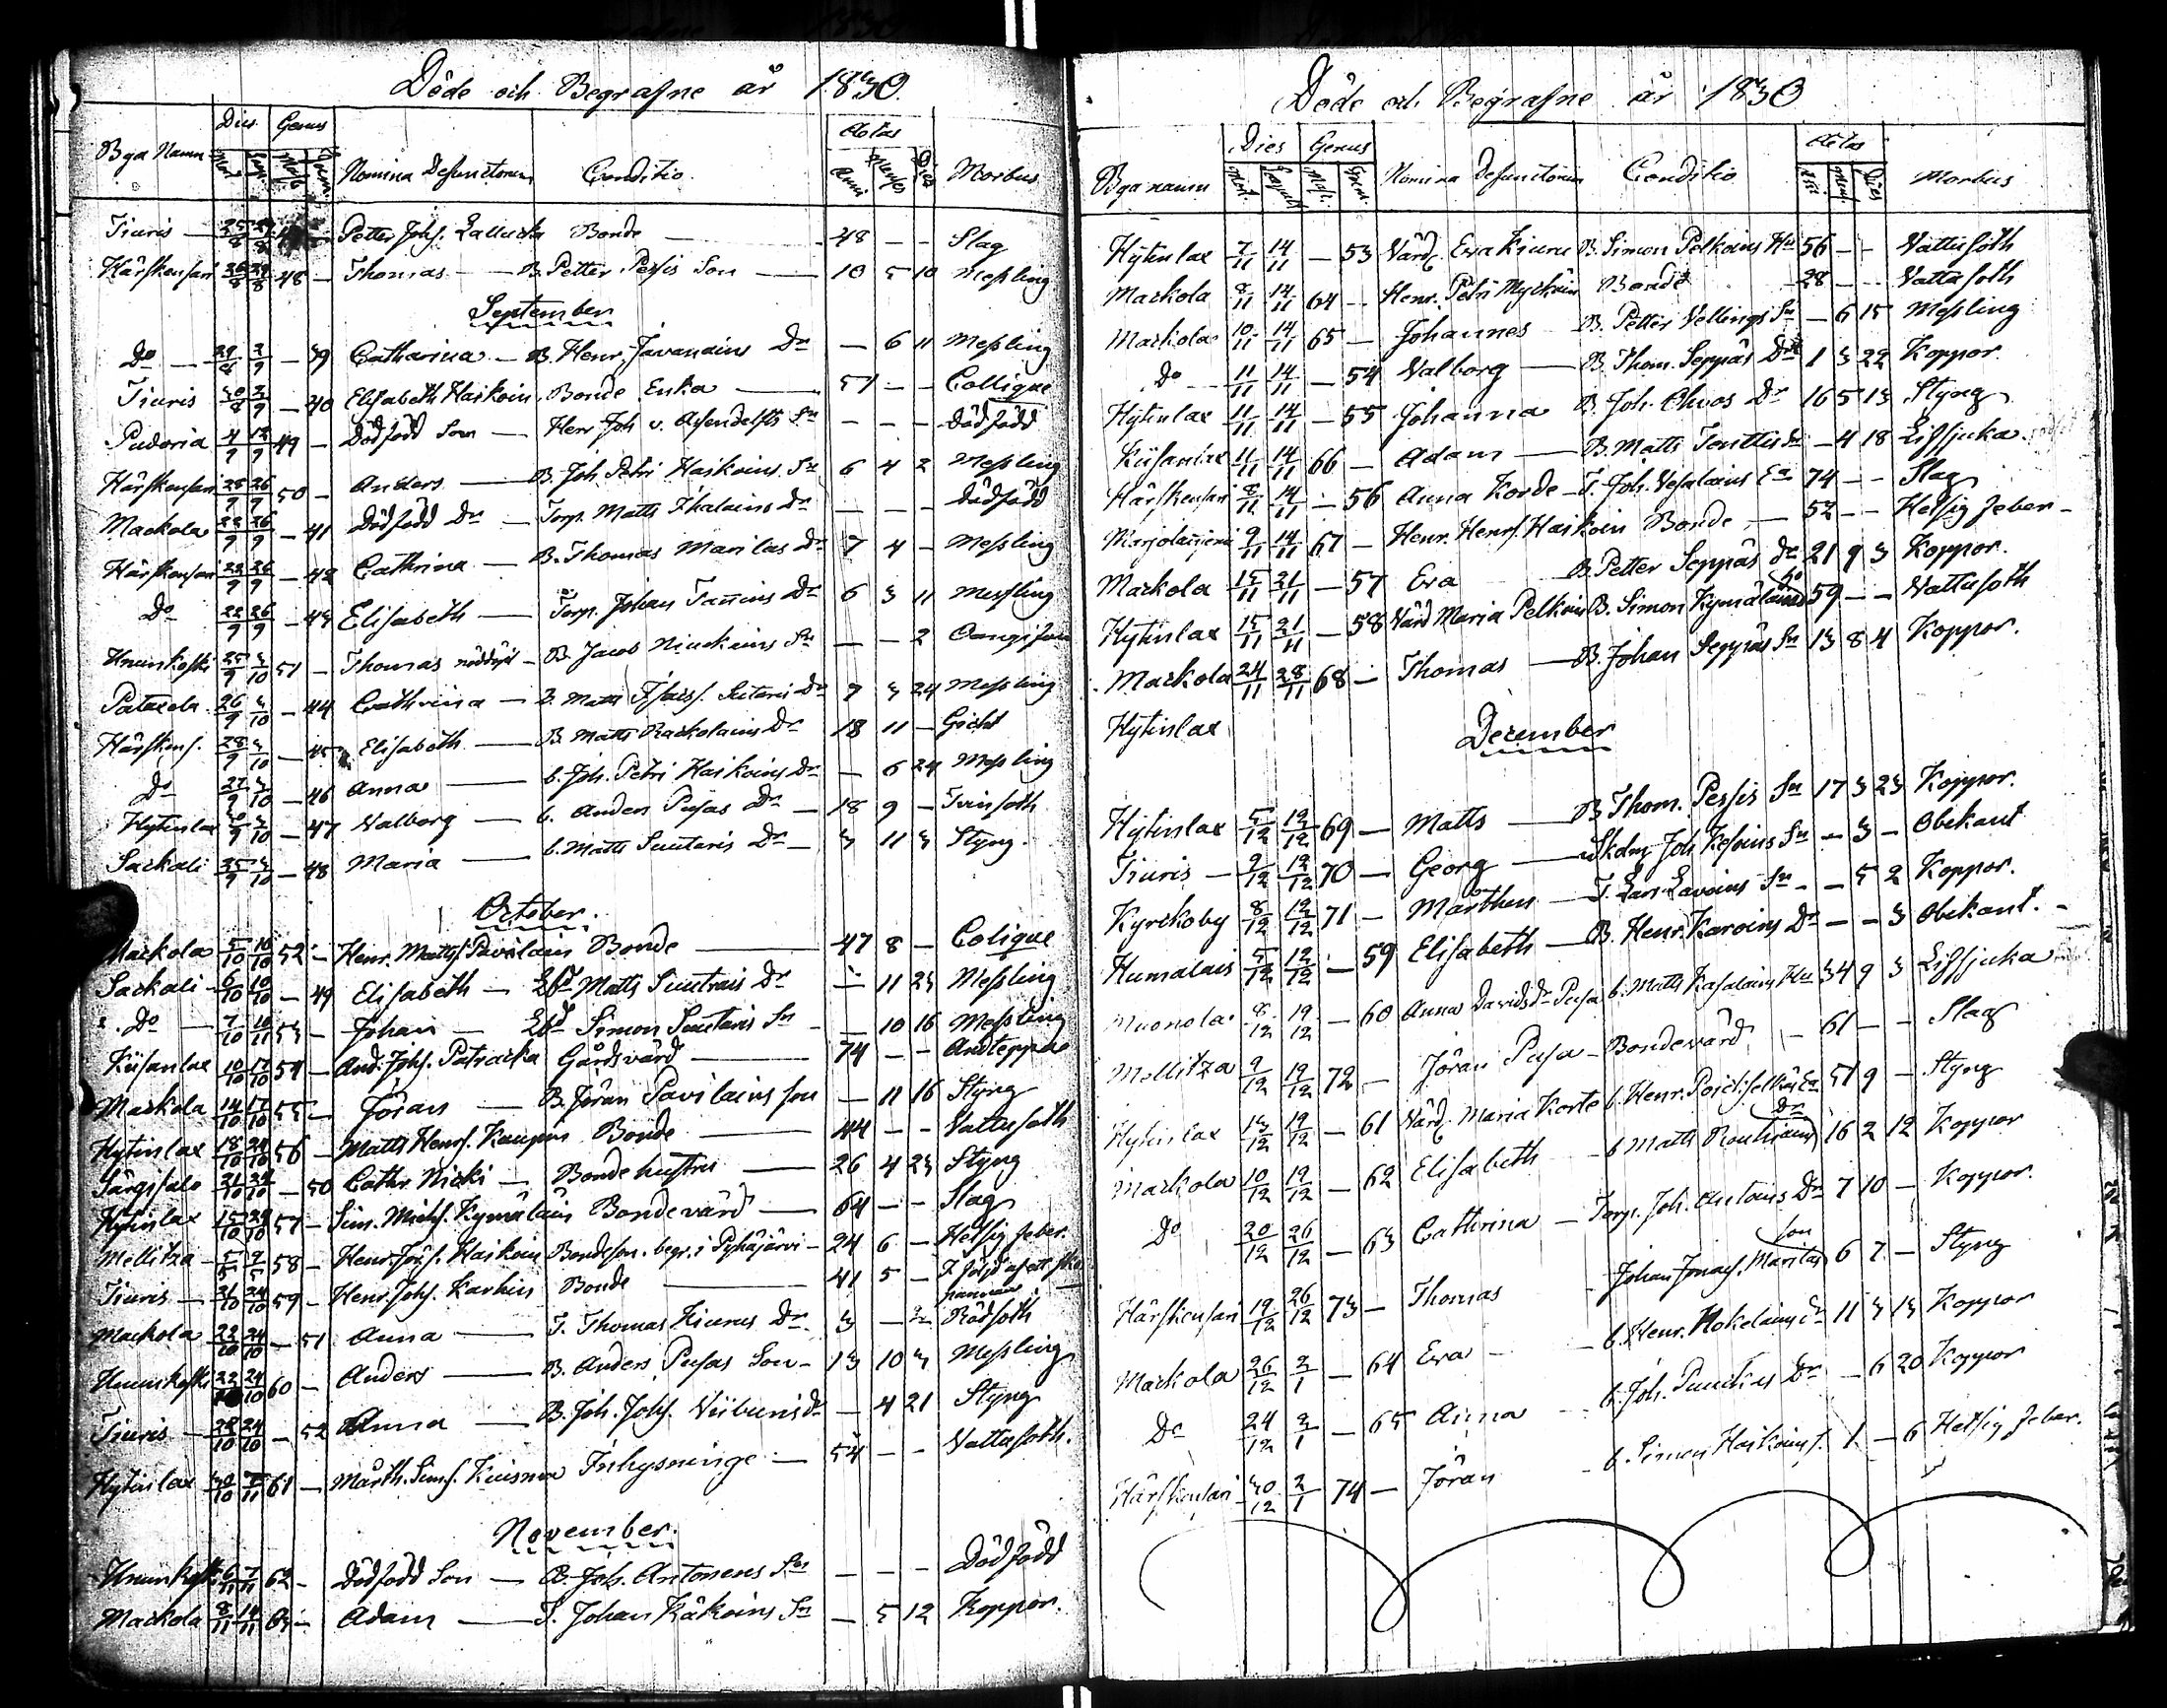 Döde och Begrafne år 1830.
Bya Namn Dies Genus Nomina Defunctorum Conditio Aetas Morbus
Mort. Sep. Masc. Foem. Anni Menses Dies
Tiuris — 25/8 29/8 — Petter Johs. Lallucka Bonde — 48 — — Slag
Härskensari 26/8 29/8 48 — Thomas — B. Petter Pessis Son — 10 5 10 Messling
September
Do — 29/8 3/9 — 39 Catharina — B. Henr. Javanains Dr — 6 11 Messling
Tiuris 30/8 3/9 — 40 Elisabeth Haikoin Bonde Enka — 57 — — Collique
Pudoria 4/9 12/9 49 — Dödfödd Son — Herr Joh v. Sn — — — Dödfödd
Härskensari 26/9 50 — Anders — B. Joh Petri Haikoins Sn 6 4 2 Messling
Mackola 22/9 26/9 — 41 Dödfödd Dr — Torp. Matts Ihalains Dr — — — Dödfödd
Härskensari 22/9 26/9 — 42 Cathrina — B. Thomas Marilas Dr 7 4 — Messling
Do 22/9 26/9 — 43 Elisabeth — Torp. Johan Tanins Dr 6 3 11 Messling
Unnunkoski 25/9 3/10 51 — Thomas nöddöpt — B. Jacob Niuckains Sn — — 2
Pataxela 26/9 3/10 — 44 Cathrina — B. Matts Suutaris Dr 7 3 24 Messling
Härskens. 28/9 3/10 — 45 Elisabeth — B. Matts Rackolains Dr 18 11 — Gicht
Do 27/9 3/10 — 46 Anna — b. Joh. Petri Haikoins Dr — 6 24 Messling
Hytinlax 3/10 — 47 Valborg — b. Anders Pusas Dr — 18 9 — Tvinsoth
Sackali 25/9 3/10 — 48 Maria — b. Matts Suutaris Dr — 3 11 3 Styng.
October.
Mackola 5/10 10/10 52 — Henr. Matts. Pavilain Bonde — 47 8 — Colique
Sackali — 6/10 10/10 — 49 Elisabeth — Matts Suutrais Dr — 11 23 Messling
Do — 7/10 10/11 53 — Johan — Simon Suutaris Sn — — 10 16 Messling
Kiisanlax 10/10 17/10 54 — And. Johs. Patracka Gårdvärd — 74 — — Andteppa
Mackola 14/10 17/10 55 — Jöran — B. Jöran Pavilains son — 11 16 Styng
Hytinlax 18/10 24/10 56 — Matts Henrs. Kaupin Bonde — 44 — — Vattusoth
Särgisalo 21/10 24/10 — 50 Cathr Nicki — Bonde hustru — 26 4 23 Styng
Hytinlax 15/10 24/10 57 — Sim. Michs. Kymäläin Bondevärd — 64 — — Slag
Mellitza — 5/5 9/5 58 — Henr. Jörs. Haikoin Bondeson. begr. i Pyhäjärvi — 24 6 — Hetsig feber.
Tiuris — 21/10 24/10 59 — Henr. Johs. Karhin Bonde — 41 5 —
Mackola 22/10 24/10 — 51 Anna — T. Thomas Kiurus Dr. 3 — Rödsoth
Unnunkoski 22/10 24/10 60 — Anders — B. Anders Pusas Son — 13 10 3 Messling
Tiuris — 22/10 24/10 — 52 Anna — B. Joh. Johs. Viibunis Dr — 4 21 Styng
Hytinlax 30/10 7/11 61 — Märth. Sims. Kuisma Inhysninge — 54 — — Vattusoth.
November.
Unnunkoski 6/11 7/11 62 — Dödfödd Son — B. Joh. Antonens Sn — — — Dödfödd
Mackola 8/11 14/11 63 — Adam — T. Johan Käkoins Sn — 5 12 Koppor.
Döde och Begrafne år 1830
Bya namn Dies Genus Nomina Defunctorum Conditio Aetas Morbus
Mort. Sepult. Masc. Foem. Anni Mens. Dies
Hytinlax 7/11 14/11 — 53 Värd. Eva Kiuru B. Simon Pelkoins Hu 56 — — Vattusoth
Mackola 8/11 14/11 64 — Henr. Petri Myckäin Bonde — 28 — — Vattusoth
Mackola 10/11 14/11 65 — Johannes — B. Petter Vellings Sn — 6 15 Messling
Do — 11/11 14/11 — 54 Valborg — B. Thom. Seppäs Dr 1 3 22 Koppor.
Hytinlax 11/11 14/11 — 55 Johanna B. Joh. Ohvos Dr 16 5 13 Styng
Kiisanlax 11/11 14/11 66 — Adam — B. Matts Tenttis Sn — 4 18 Lifsjuka
Härskensari 8/11 14/11 — 56 Anna Korde — T. Joh. Vesalains Ea 74 — — Slag
Marjolaniemi 9/11 14/11 67 — Henr. Henrs. Haikoin Bonde — 52 — — Hetsig feber —
Mackola 15/11 21/11 — 57 Eva B. Petter Seppäs Dr 21 9 3 Koppor.
Hytinlax 15/11 21/11 — 58 Värd Maria Pelkoin B. Simon Kymäläins 59 — — Vattusoth
Mackola 24/11 28/11 68 — Thomas — B. Johan Seppäs Sn 13 8 4 Koppor.
Hytinlax
December
Hytinlax 5/12 12/12 69 — Matts — B. Thom. Pessis Sn 17 3 23 Koppor.
Tiuris — 9/12 12/12 70 — Georg — Joh. Kesoins Sn — 3 — Obekant
Kyrckoby 8/12 12/12 71 — Märthen — T. Lars Lavoins Sn — — 5 2 Koppor.
Humalais 5/12 12/12 — 59 Elisabeth — B. Henr. Karoins Dr — — 3 Obekant. —
Muonola 8/12 19/12 — 60 Anna Davids Dr Pusa b. Matts Kasalains Hu 34 9 3 Lifsjuka
Mellitza 9/12 19/12 72 — Jöran Pusa — Bondevärd — 61 — — Slag
Hytinlax 13/12 19/12 — 61 Värd. Maria Korte b. Henr. Ea 51 9 — Styng
Mackola 10/12 19/12 — 62 Elisabeth — b Matts Routiains Dr 16 2 12 Koppor
Do 20/12 26/12 — 63 Cathrina — Torp. Joh. Antoins Dr 7 10 — Koppor.
Härskensari 19/12 26/12 73 — Thomas — Johan Jonaes. Marilas son 6 7 — Styng
Mackola 26/12 2/1 — 64 Eva — b. Henr. Hokelains Dr 11 3 13 Koppor
Do 24/12 2/1 — 65 Anna — b. Joh. Puuckis Dr — 6 20 Koppor
Härskensari 30/12 2/1 74 — Jöran — b. Simon Haikoins S. 1 — 6 Hetsig feber.